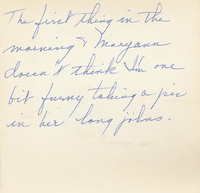 The first thing in the
morning & Maryann
doesn't think I'm one
bit funny taking a pic
in her long johns.